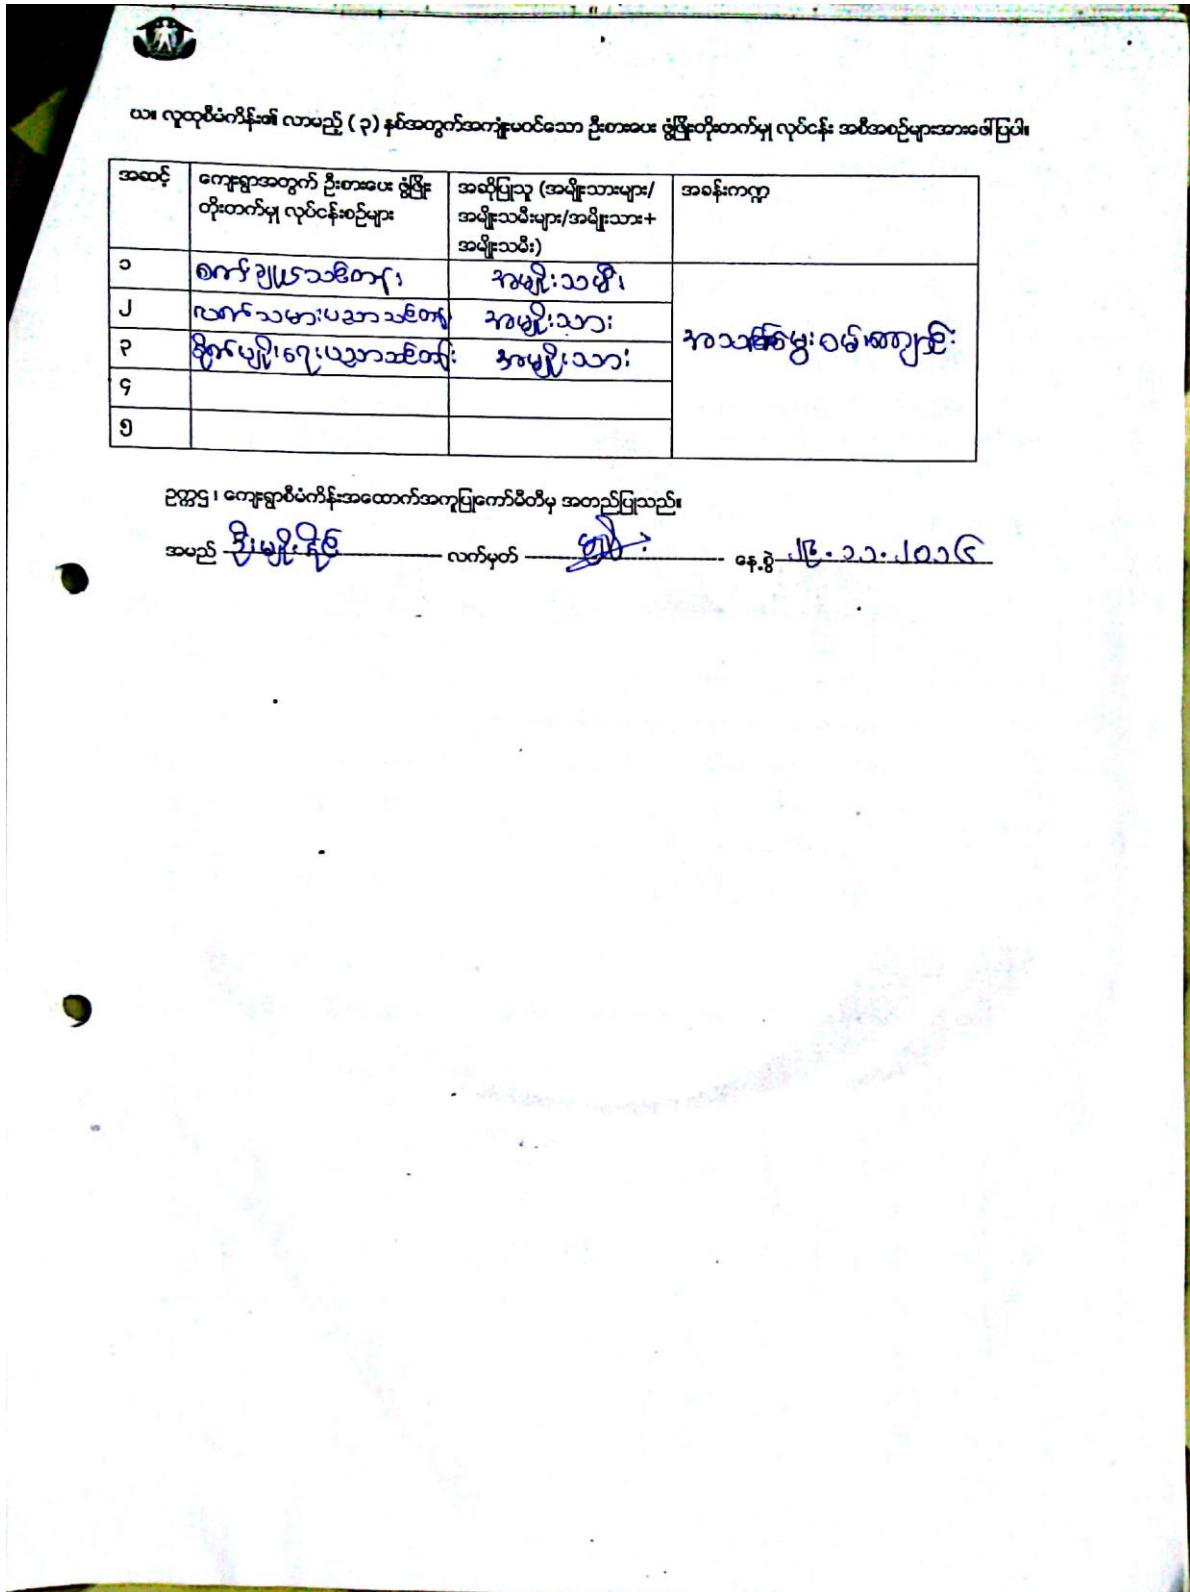 ဃ။ လူထုစီမံကိန်း၏ လာမည့် ( ၃ ) နှစ်အတွက်အကျုံးမဝင်သော ဦးစားပေး ဖွံ့ဖြိုးတိုးတက်မှု လုပ်ငန်း အစီအစဉ်များအားဖေါ်ပြပါ။
အဆင့်
ကျေးရွာအတွက် ဦးစားပေး ဖွံ့ဖြိုး
တိုးတက်မှု လုပ်ငန်းစဉ်များ
အဆိုပြုသူ (အမျိုးသားများ/
အမျိုးသမီးများ/အမျိုးသား+
အမျိုးသမီး)
အခန်းကဏ္ဍ
၁ စက်ချုပ်သင်တန်း အမျိုးသမီး
၂ လက်သမားပညာသင်တန်း အမျိုးသား
အသက်မွေးဝမ်းကျောင်း
၃ စိုက်ပျိုးရေးပညာသင်တန်း အမျိုးသား
၄
၅
ဥက္ကဌ ၊ ကျေးရွာစီမံကိန်းအထောက်အကူပြုကော်မီတီမှ အတည်ပြုသည်။
အမည် ဦးမျိုးနိုင် လက်မှတ် နေ့စွဲ